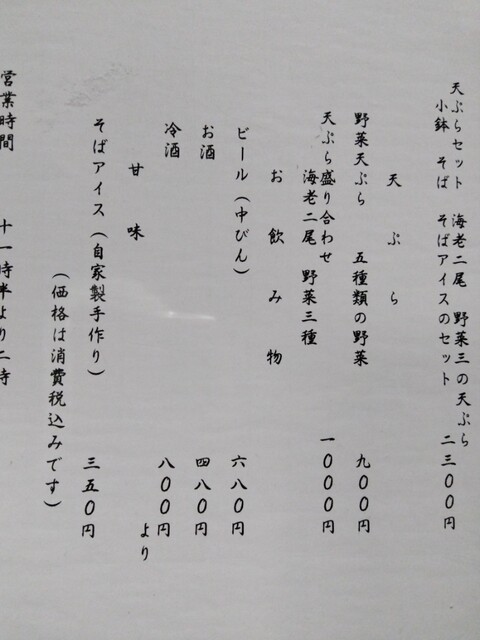 天ぷらセット 海老二尾 野菜三の天ぷら
小鉢 そば そばアイスのセット 二三〇〇円
天ぷら
野菜天ぷら 五種類の野菜 九〇〇円
天ぷら盛り合わせ
海老二尾 野菜三種 一〇〇〇円
お飲み物
ビール(中びん) 六八〇円
お酒 四八〇円
冷酒 八〇〇円より
甘味
そばアイス(自家製手作り) 三五〇円
(価格は消費税込みです)
営業時間 十一時半より二時